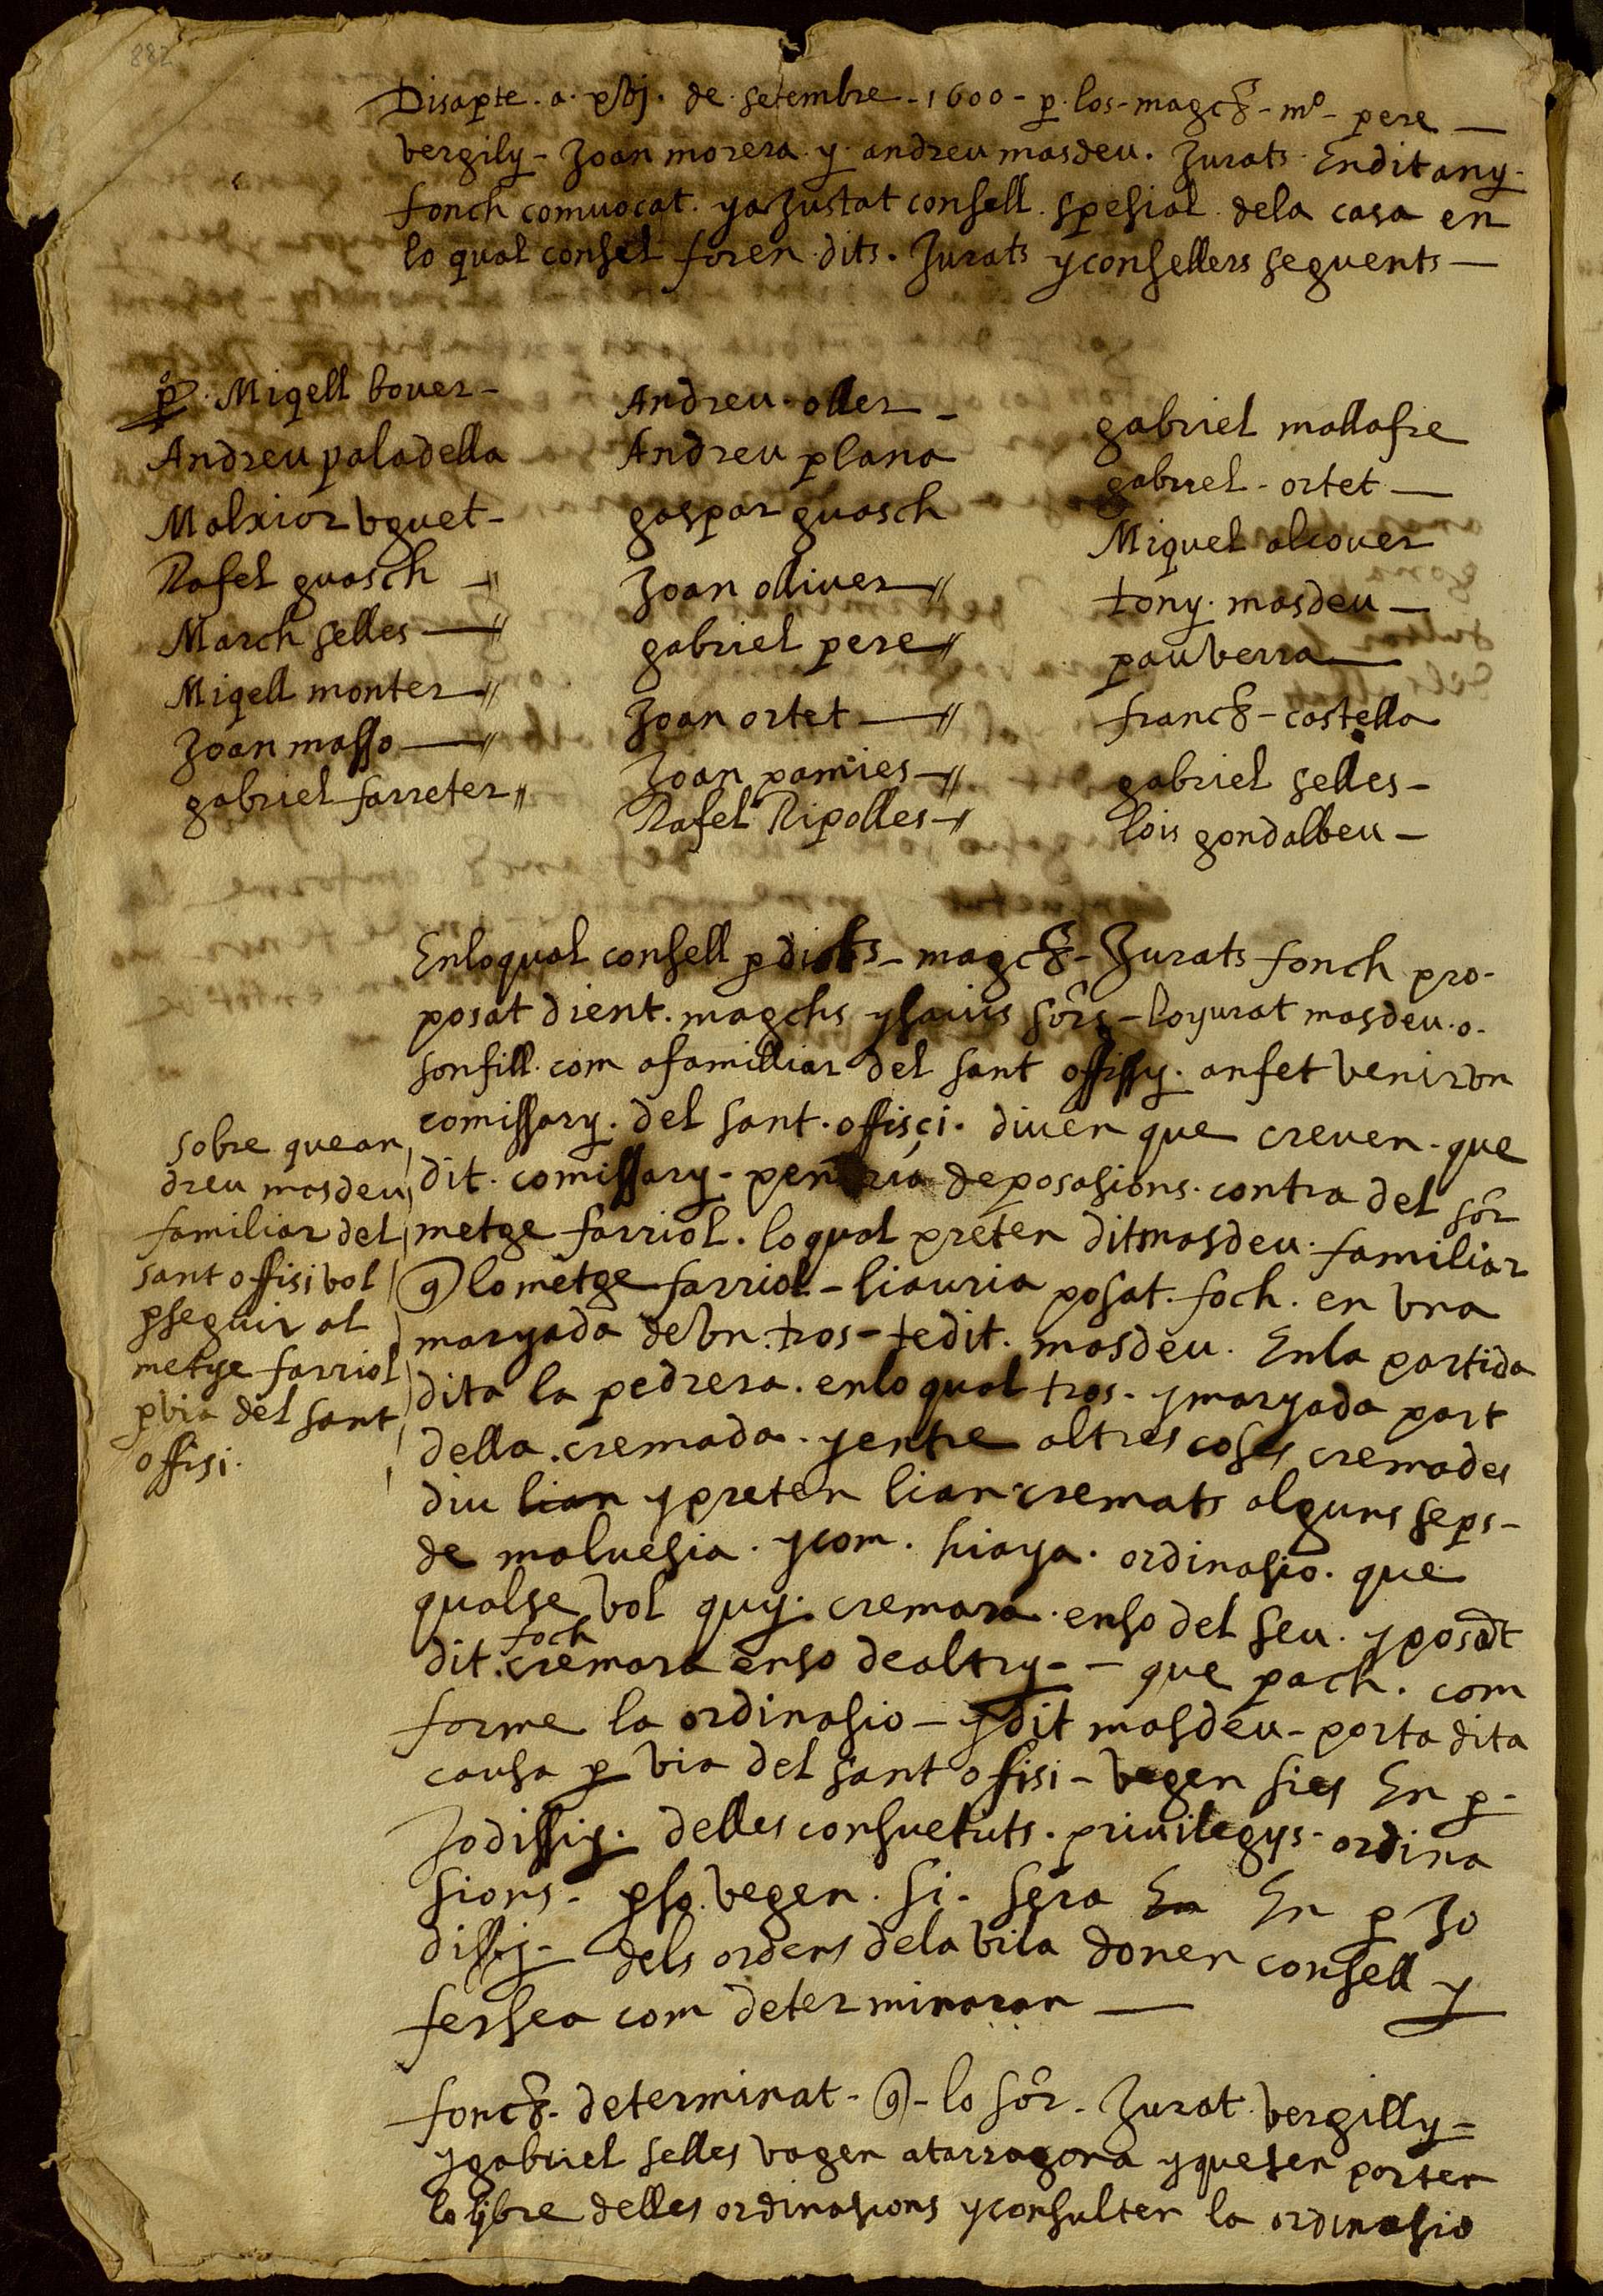 882
Disapte. a. xvj. de setembre - 1600 - p. los - magchs - mº - pere —
vergily - Joan morera. y. andreu masdeu. Jurats. En dit any.
fonch comvocat. y a Justat consell. spesial. dela casa en
lo qual consel foren dits. Jurats y consellers seguents —
pº. Miqell bover -
Andreu paladella
Malxior vguet -
Rafel guasch
March selles
Miqell monter
Joan masso
gabriel farreter
Andreu. oller -
Andreu plana
gaspar guasch
Joan olliver
gabriel pere
Joan ortet
Joan pamies
Rafel Ripolles
gabriel mallafre
gabriel - ortet —
Miquel alcover
tony. masdeu —
pau verra —
franch - castella
gabriel selles -
lois gondalbeu -
En lo qual consell p dicts - magchs - Jurats fonch pro-
posat dient. magchs y savis sôrs - lo yurat masdeu. o.
son fill. com a familliar del sant offissy. an fet venir vn
comissary. del sant. offisci. diuen que creuen. que
dit. comissary - pendria deposasions. contra del sôr
metge farriol. lo qual preten dit masdeu. familiar
q lo metge farriol - li auria posat. foch. en vna
maryada de vn. tros - te dit. masdeu. En la partida
dita la pedrera. en lo qual tros. y maryada part
della. cremada. y entre altres coses cremades
diu lian y preten li an cremats alguns seps -
de malvesia. y com. hi aya. ordinasio. que
qualse vol quy. cremara. en so del seu. y posat
dit. foch cremara en so de altry - - que pach. com
forme la ordinasio - y dit masdeu - porta dita
causa p via del sant offisi - vegen si es En p -
Jodissy. delles consuetuts. privilegys. ordina
sions - p so. vegen. si. sera En En p Jo
dissy - dels ordens dela vila donen consell y
fersea com determinaran —
sobre que an
dreu masdeu
familiar del
sant offisi vol
pseguir al
metge farriol
p via del sant
offisi.
fonch. determinat - q - lo sôr. Jurat. vergilly -
y gabriel selles vagen a tarragona y que sen porten
lo lybre delles ordinasions y consulten la ordinasio